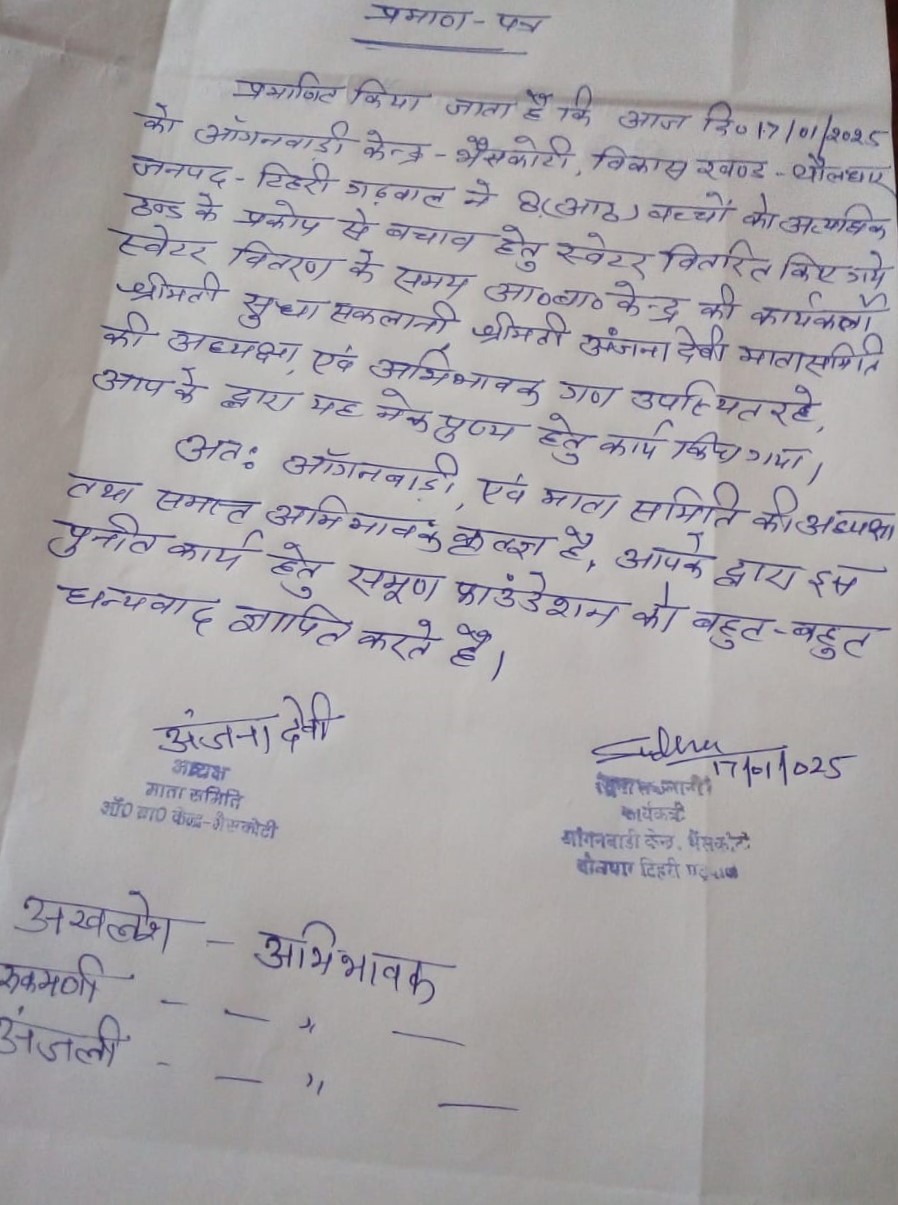 प्रमाण-पत्र
प्रमाणित किया जाता है कि आज दि० 17/01/2025
को ऑगनवाड़ी केन्द्र - भैसकोटी, विकास खण्ड - थौलधार
जनपद - टिहरी गढ़वाल ने 8 (आठ) बच्चों को अत्यधिक
ठन्ड के प्रकोप से बचाव हेतु स्वेटर वितरित किए गये
स्वेटर वितरण के समय आ०बा० केन्द्र की कार्यकर्ता
श्रीमती सुधा सकलानी, श्रीमती अंजना देवी माता समिति
की अध्यक्षा, एवं अभिभावक गण उपस्थित रहे,
आप के द्वारा यह नेक पुण्य हेतु कार्य किया गया।
अतः ऑगनबाड़ी, एवं माता समिति की अध्यक्षा
तथा समस्त अभिभावक कृतज्ञ है, आपके द्वारा इस
पुनीत कार्य हेतु समूण फाउंडेशन को बहुत-बहुत
धन्यवाद ज्ञापित करते है।
अंजना देवी
अध्यक्ष
माता समिति
ऑ० बा० केन्द्र-भैसकोटी
Sudha
17/01/025
सुधा सकलानी
कार्यकत्री
आंगनबाडी केन्द्र, भैंसकोटी
थौलधार टिहरी गढ़वाल
अखलेश - अभिभावक
रुकमणी - — " —
अंजली - — " —